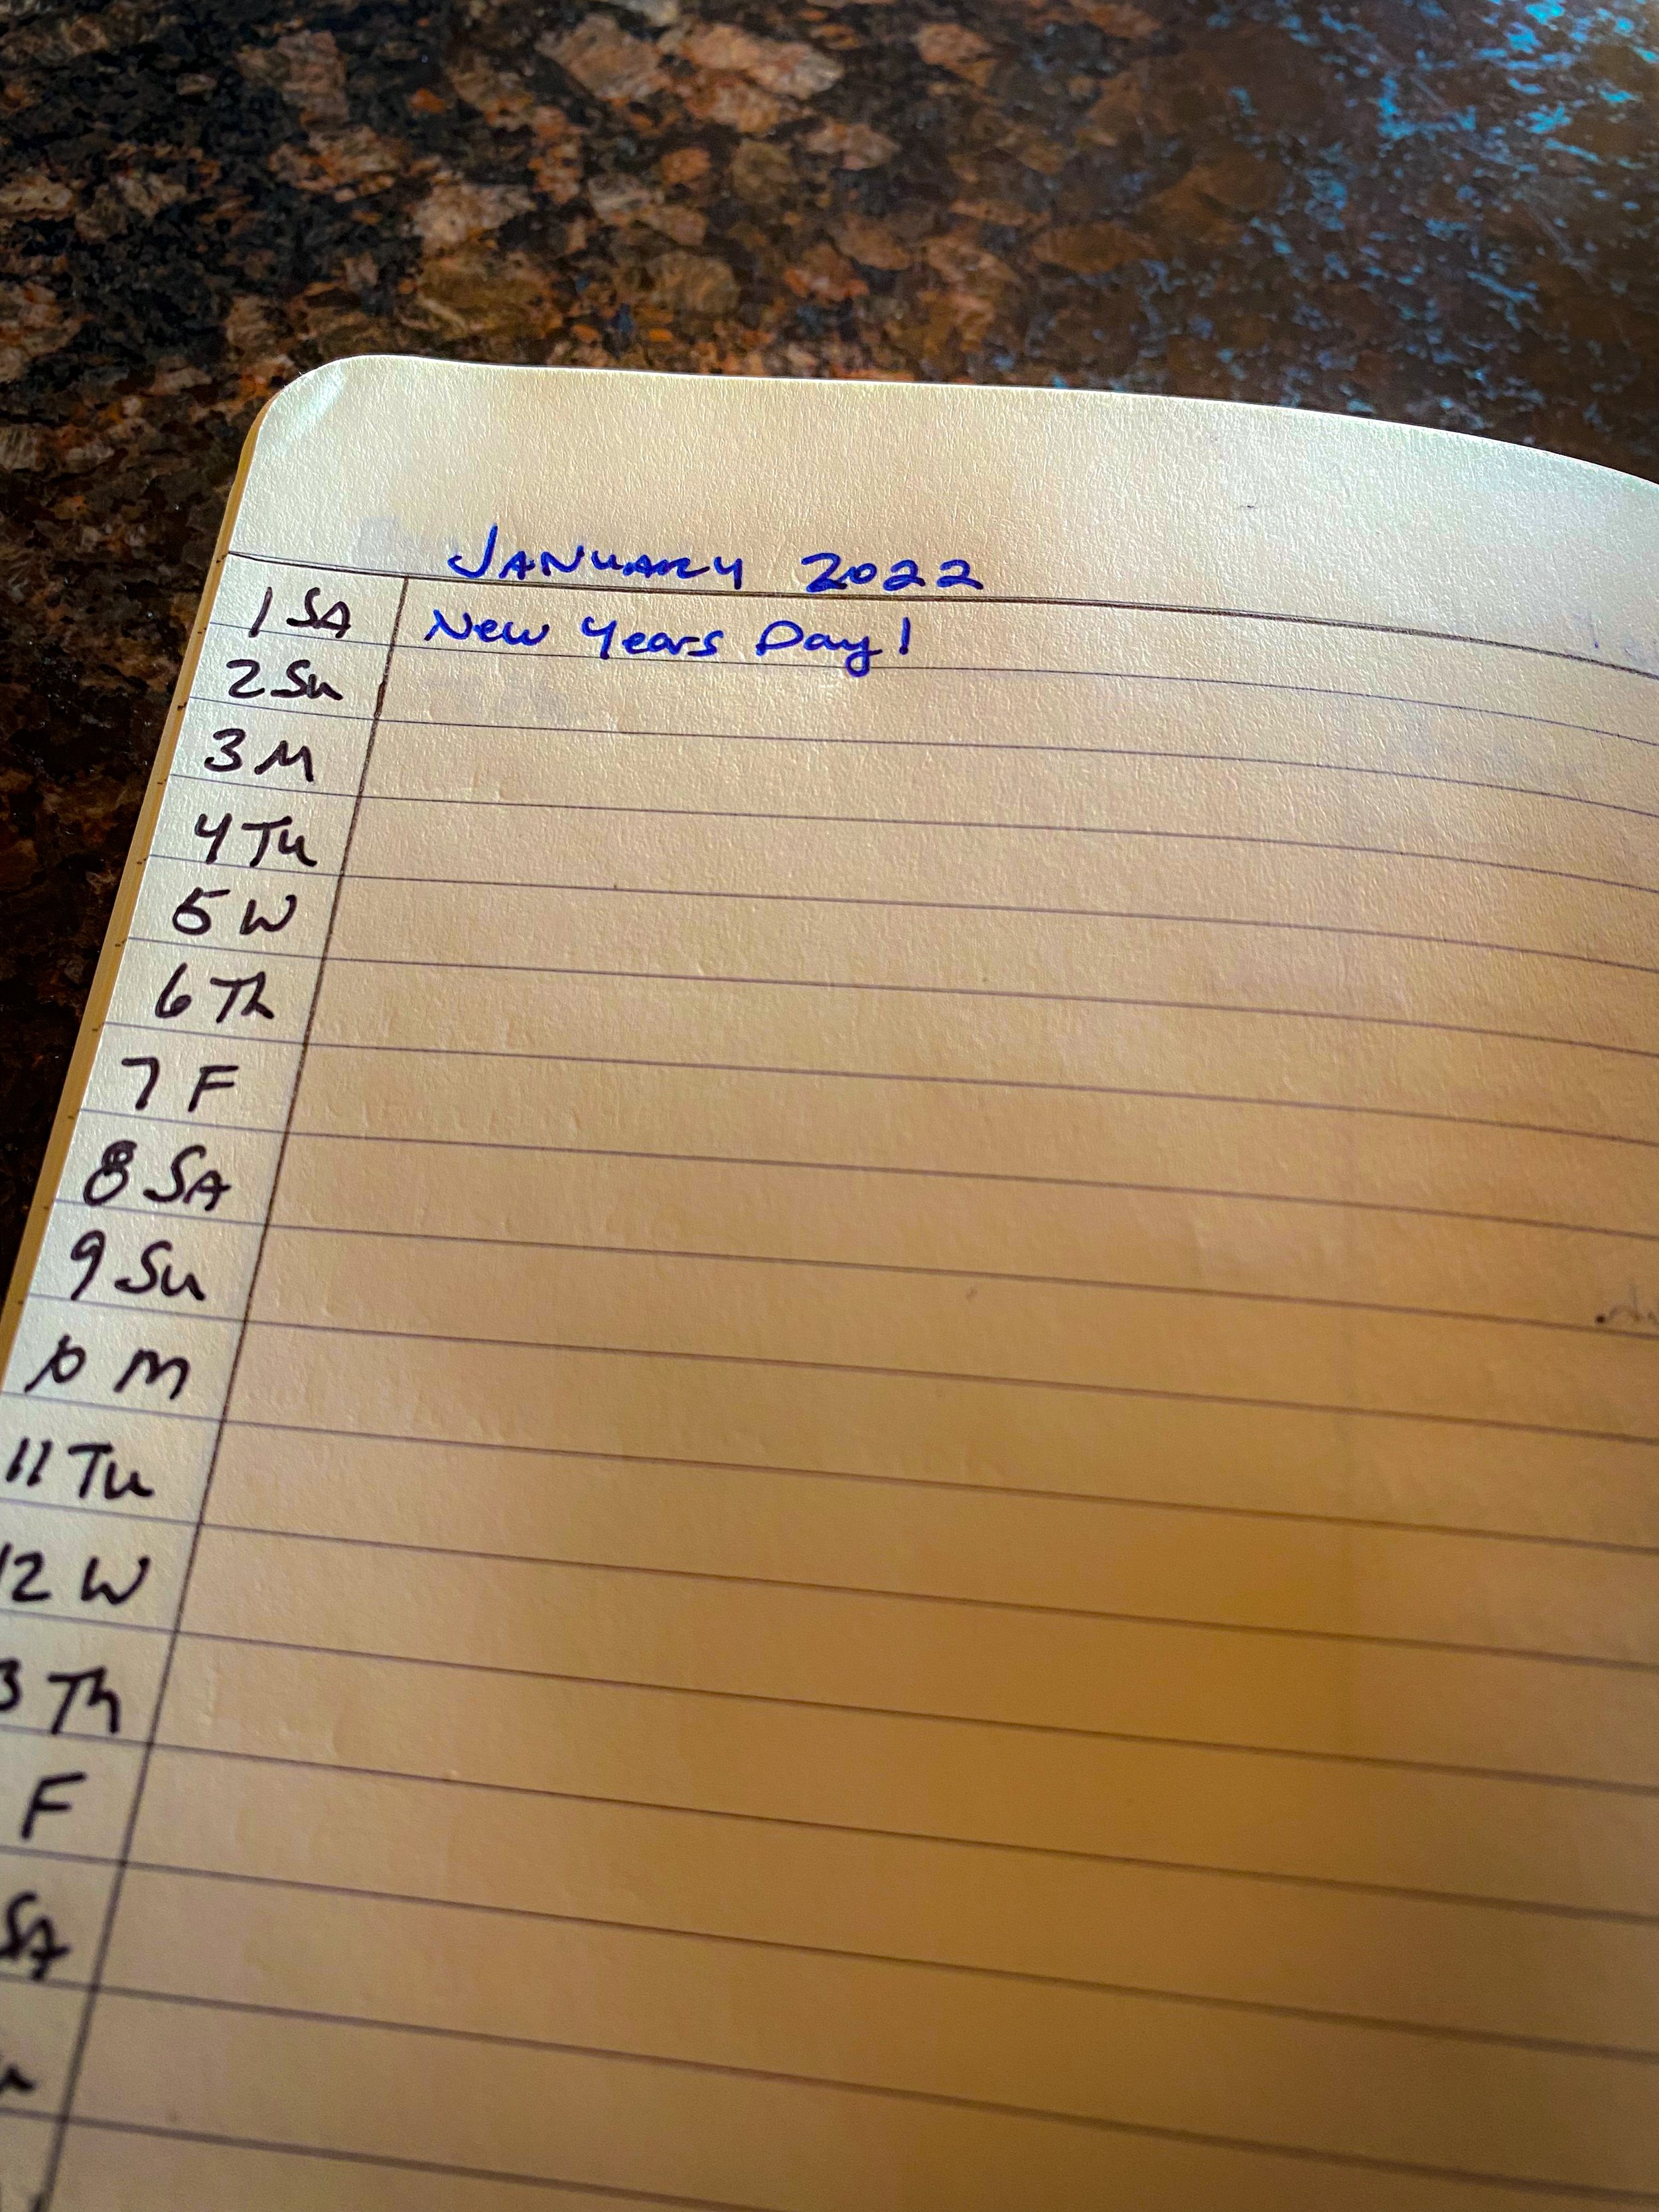 JANUARY 2022
1 SA New Years Day!
2 Su
3 M
4 Tu
5 W
6 Th
7 F
8 SA
9 Su
10 M
11 Tu
12 W
3 Th
F
SA